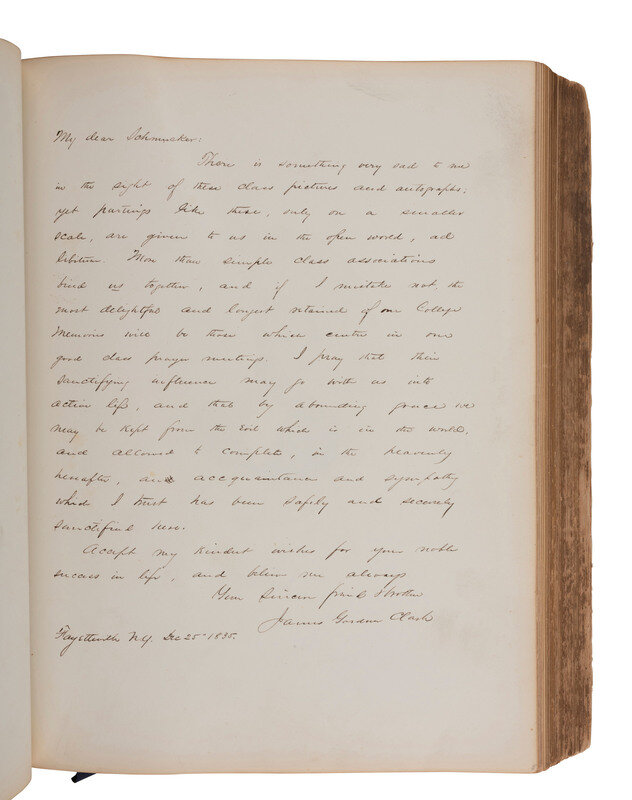 My dear Schmucker:
There is something very sad to me
in the sight of these class pictures and autographs;
yet partings like these, only on a smaller
scale, are given to us in the open world, ad
libitum. More than simple class associations
bind us together, and if I mistake not, the
most delightful and longest retained of our College
Memories will be those which center in our
good class prayer meetings. I pray that their
sanctifying influence may go with us into
active life, and that by abounding grace we
may be kept from the Evil which is in the world,
and allowed to complete, in the heavenly
hereafter, an acquaintance and sympathy
which I trust has been safely and securely
sanctified here.
Accept my kindest wishes for your noble
success in life, and believe me always
Your Sincere friend & brother
James Gordon Clark
Fayetteville N.Y. Dec 25" 1835.